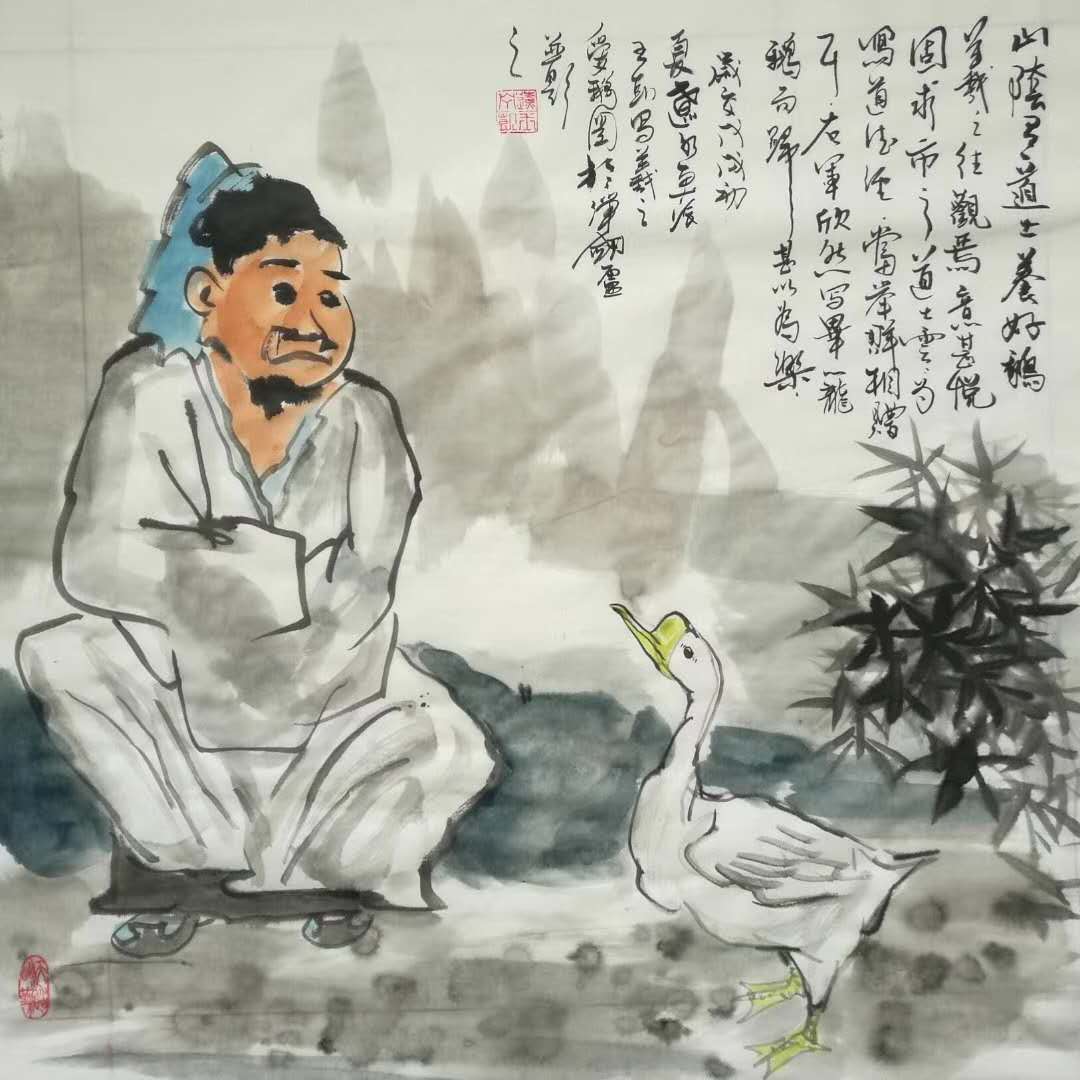 山陰有道士養好鵝
羲之往觀焉意甚悅
固求市之道士云為
寫道德經當舉群相贈
耳右軍欣然寫畢籠
鵝而歸甚以為樂
歲交戊戌初
夏
寫羲之
愛鵝圖於
並題
之